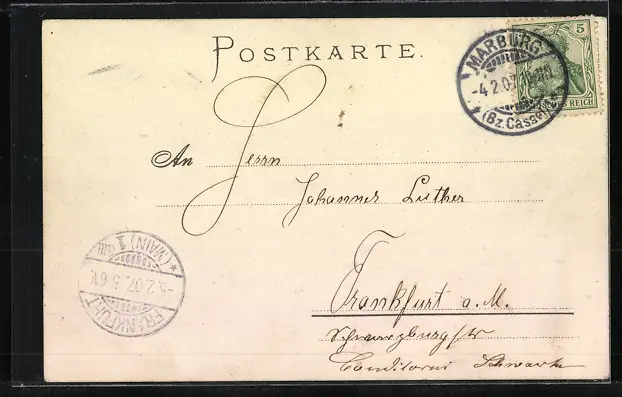 POSTKARTE.
5
DEUTSCHES REICH
MARBURG
-4.2.07
*(Bz.Cassel)
An Herrn
Johannes Luther
Frankfurt a. M.
Schwarzburgstr
Conditorei
FRANKFURT
-5.2.07. 5-6V.
*(MAIN) 1